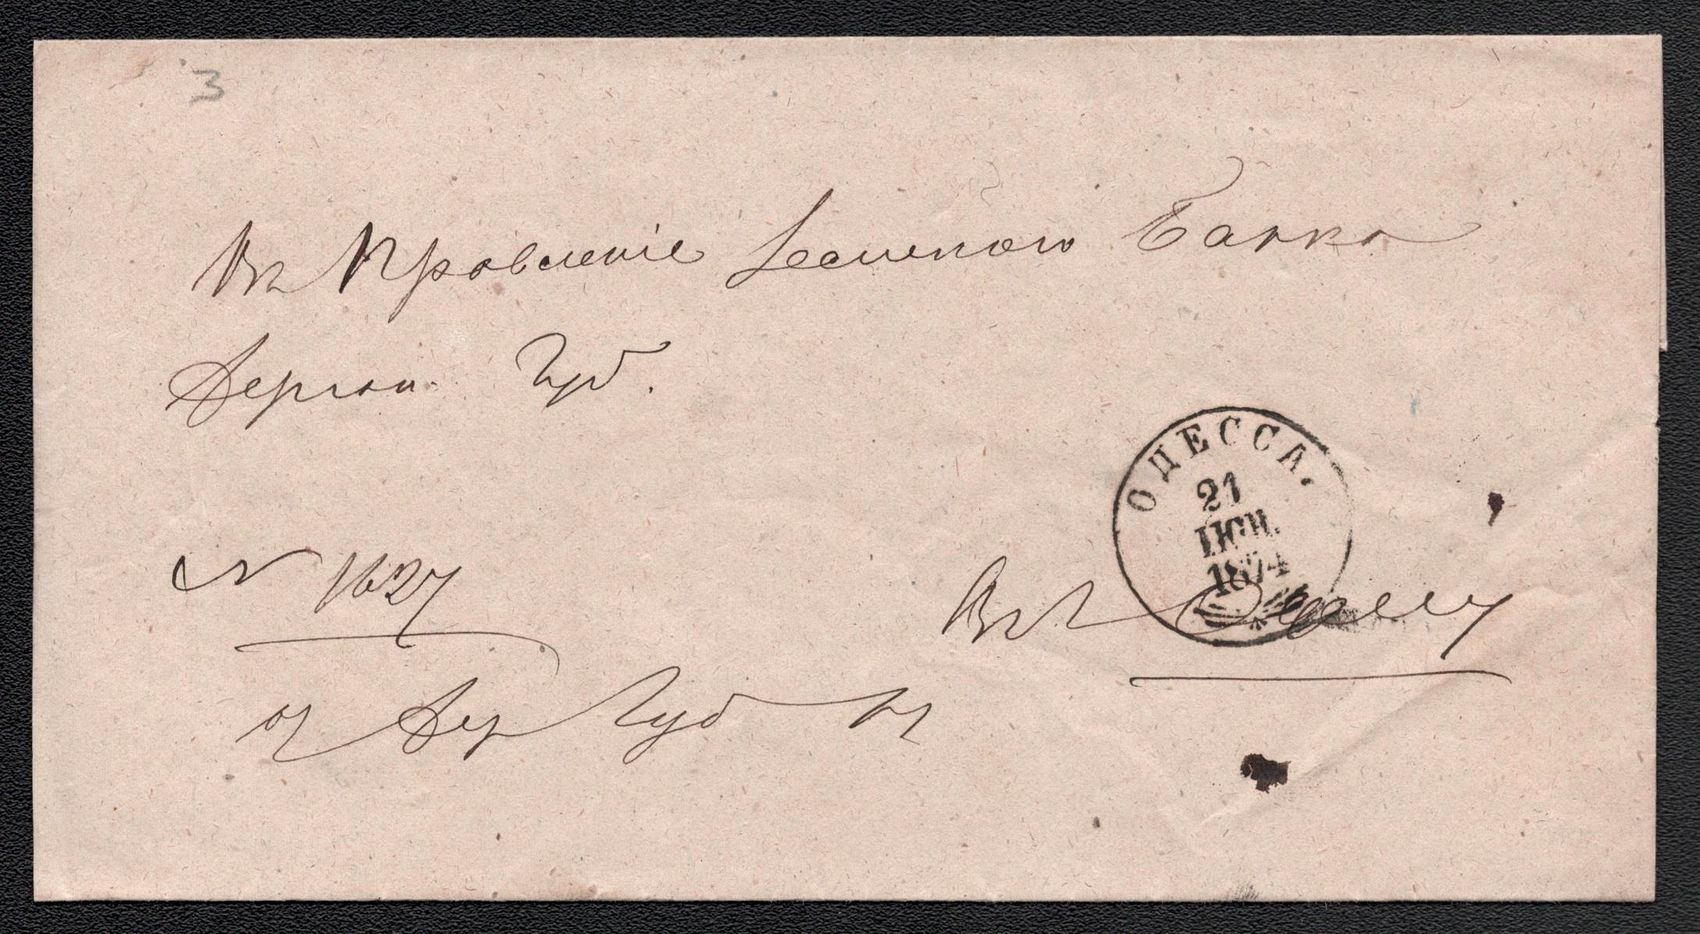 3
Въ Правленіе Земскаго Банка
Херсон. Губ.
ОДЕССА.
21
ІЮН.
1874
№ 1627
Въ Одессу
Хер Губ